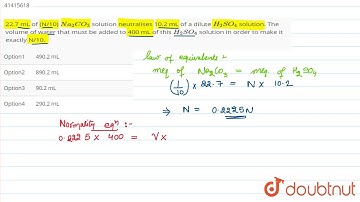 41415618
22.7 mL of (N/10) Na₂CO₃ solution neutralises 10.2 mL of a dilute H₂SO₄ solution. The
volume of water that must be added to 400 mL of this H₂SO₄ solution in order to make it
exactly N/10.
Option1 490.2 mL
Option2 890.2 mL
Option3 90.2 mL
Option4 290.2 mL
law of equivalence :-
meq of Na₂CO₃ = meq of H₂SO₄
(1/10) × 22.7 = N × 10.2
⇒ N = 0.2225N
Normality eqⁿ :-
0.2225 × 400 = V ×
doubtnut